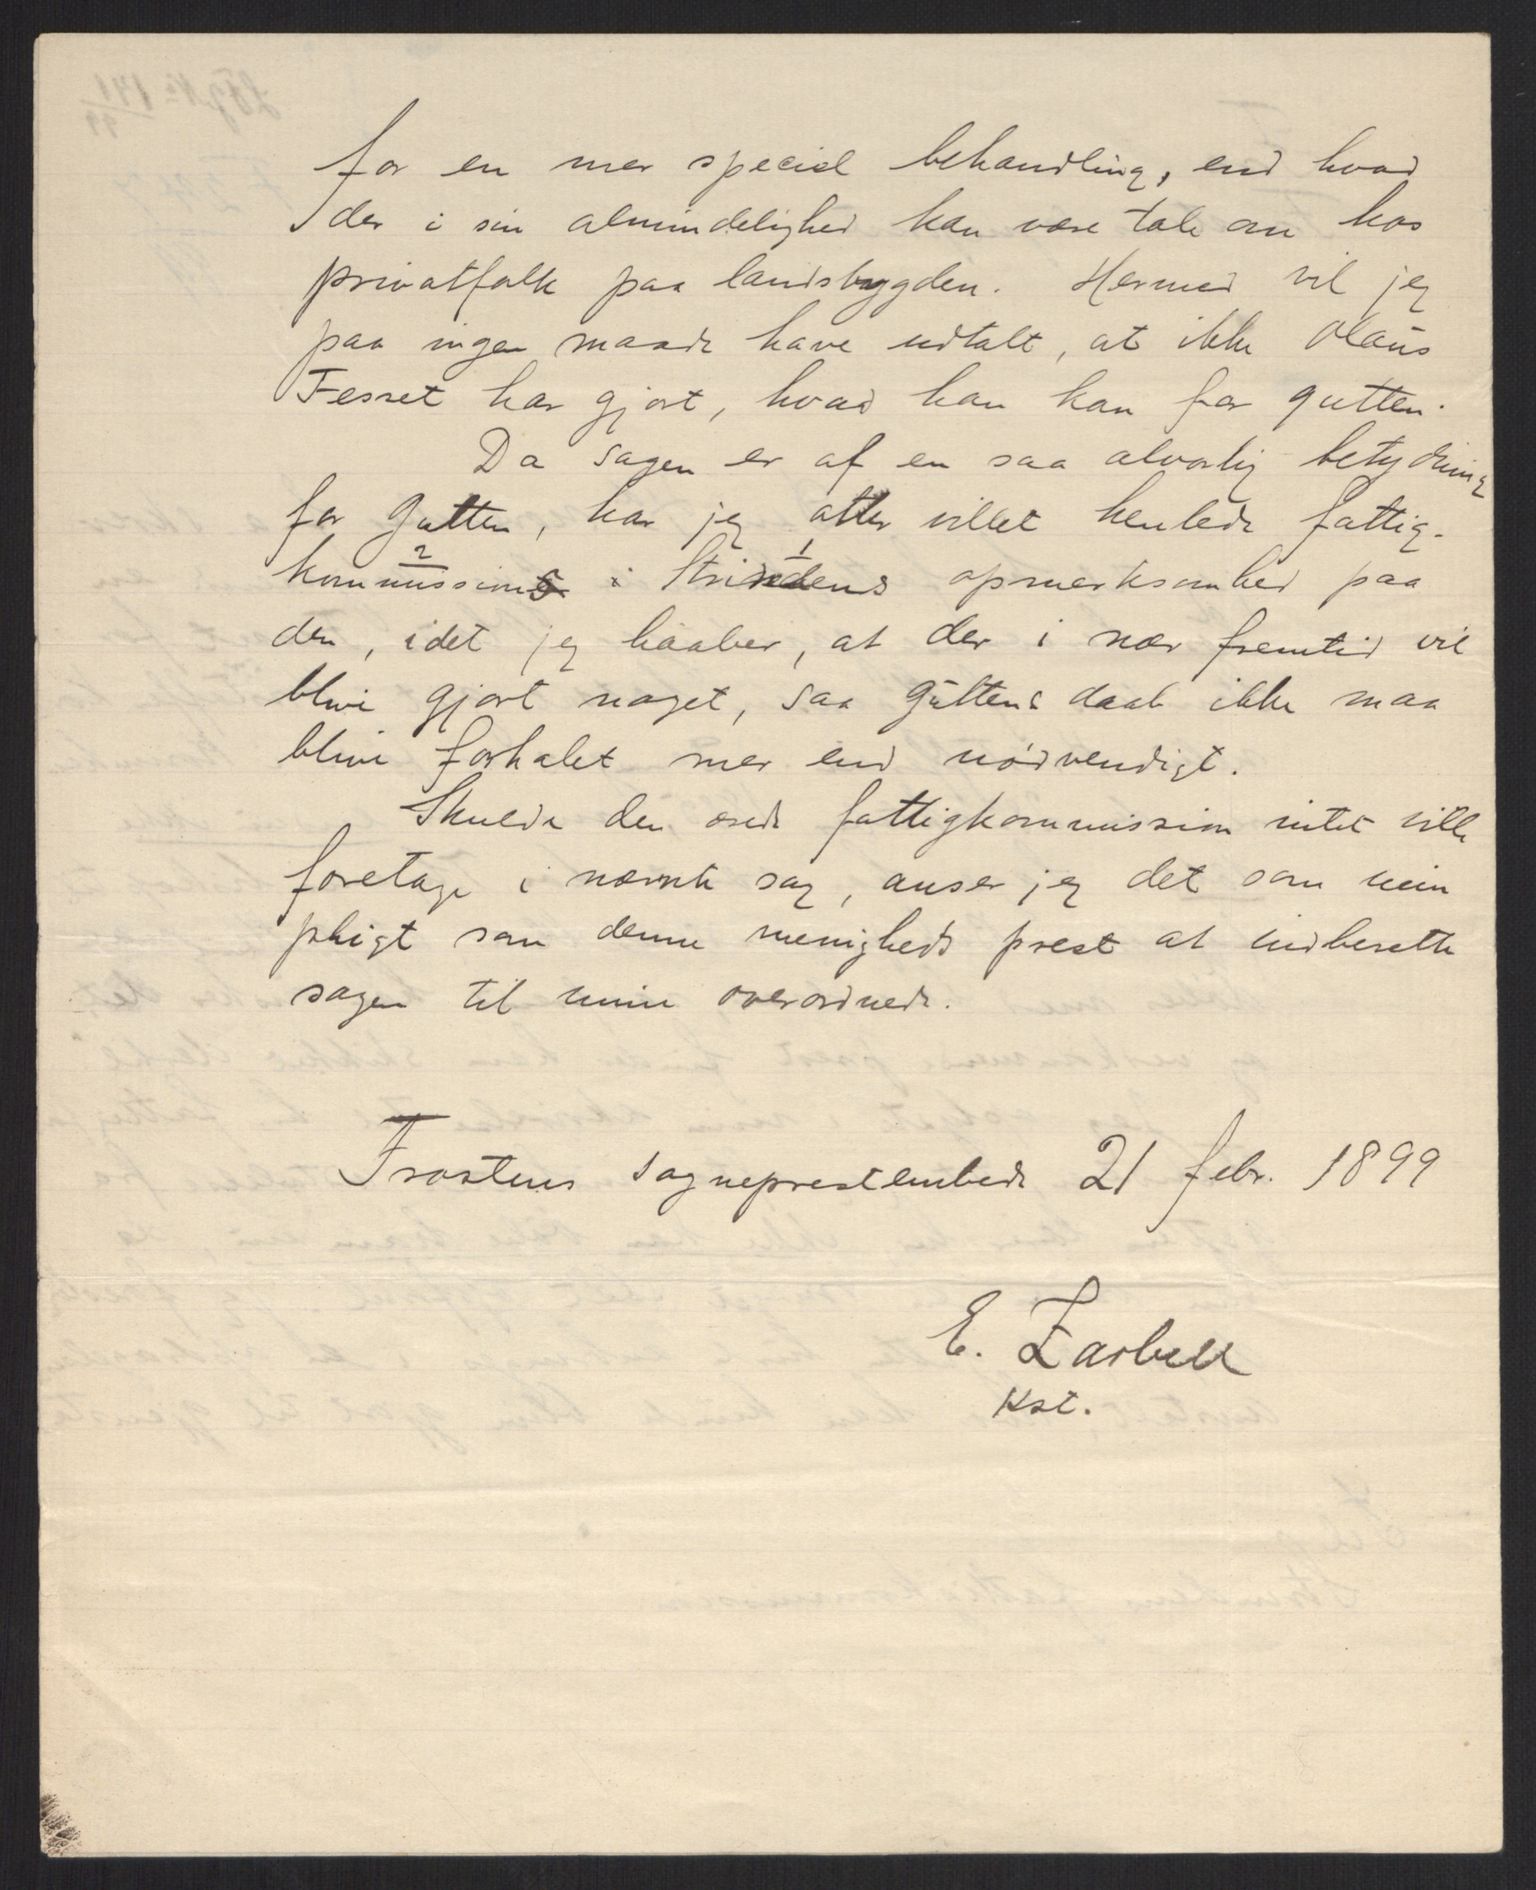 for en mer speciel behandling, end hvad
der i sin almindelighed kan være tale om hos
privatfolk paa landsbygden. Hermed vil jeg
paa ingen maade have udtalt, at ikke Olaus
Fesset har gjort, hvad han kan for gutten.
Da sagen er af en saa alvorlig betydning
for gutten, har jeg atter villet henlede fattig-
kommissions i Strindens opmerksomhed paa
den, idet jeg haaber, at der i nær fremtid vil
blive gjort noget, saa guttens daab ikke maa
blive forhalet mer end nødvendigt.
Skulde den ærede fattigkommission intet ville
foretage i nævnte sag, anser jeg det som min
pligt som denne menigheds prest at indberette
sagen til mine overordnede.
Frostens sogneprestembede 21 febr. 1899
E. Zarbell
Kst.